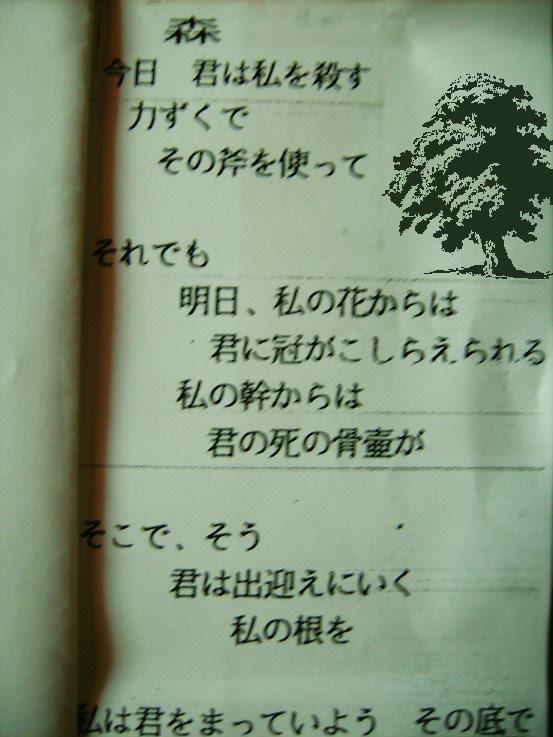 森
今日　君は私を殺す
力ずくで
その斧を使って
それでも
明日、私の花からは
君に冠がこしらえられる
私の幹からは
君の死の骨壷が
そこで、そう
君は出迎えにいく
私の根を
私は君をまっていよう　その底で